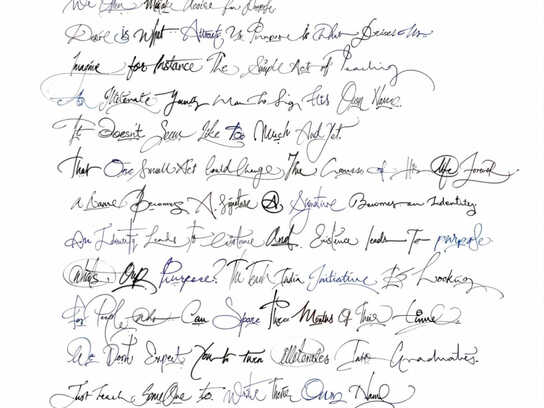 We Often Mistake desire for Purpose
Desire is What Attracts Us, Purpose Is What Drives Us.
Imagine for Instance The Simple Act of Teaching
An Illiterate Young Man To Sign His Own Name.
It Doesn't Seem Like Too Much And Yet.
That One Small Act Could Change The Course of His Life Forever
a Name Becomes A Signature A Signature Becomes an Identity
An Identity Leads to Existence And Existence leads To purpose
What's Our Purpose? The Teach India Initiative Is Looking
For People who Can Spare Three Months Of Their time.
We Don't Expect You to turn illiterates Into Graduates.
Just teach SomeOne to Write Their Own Name